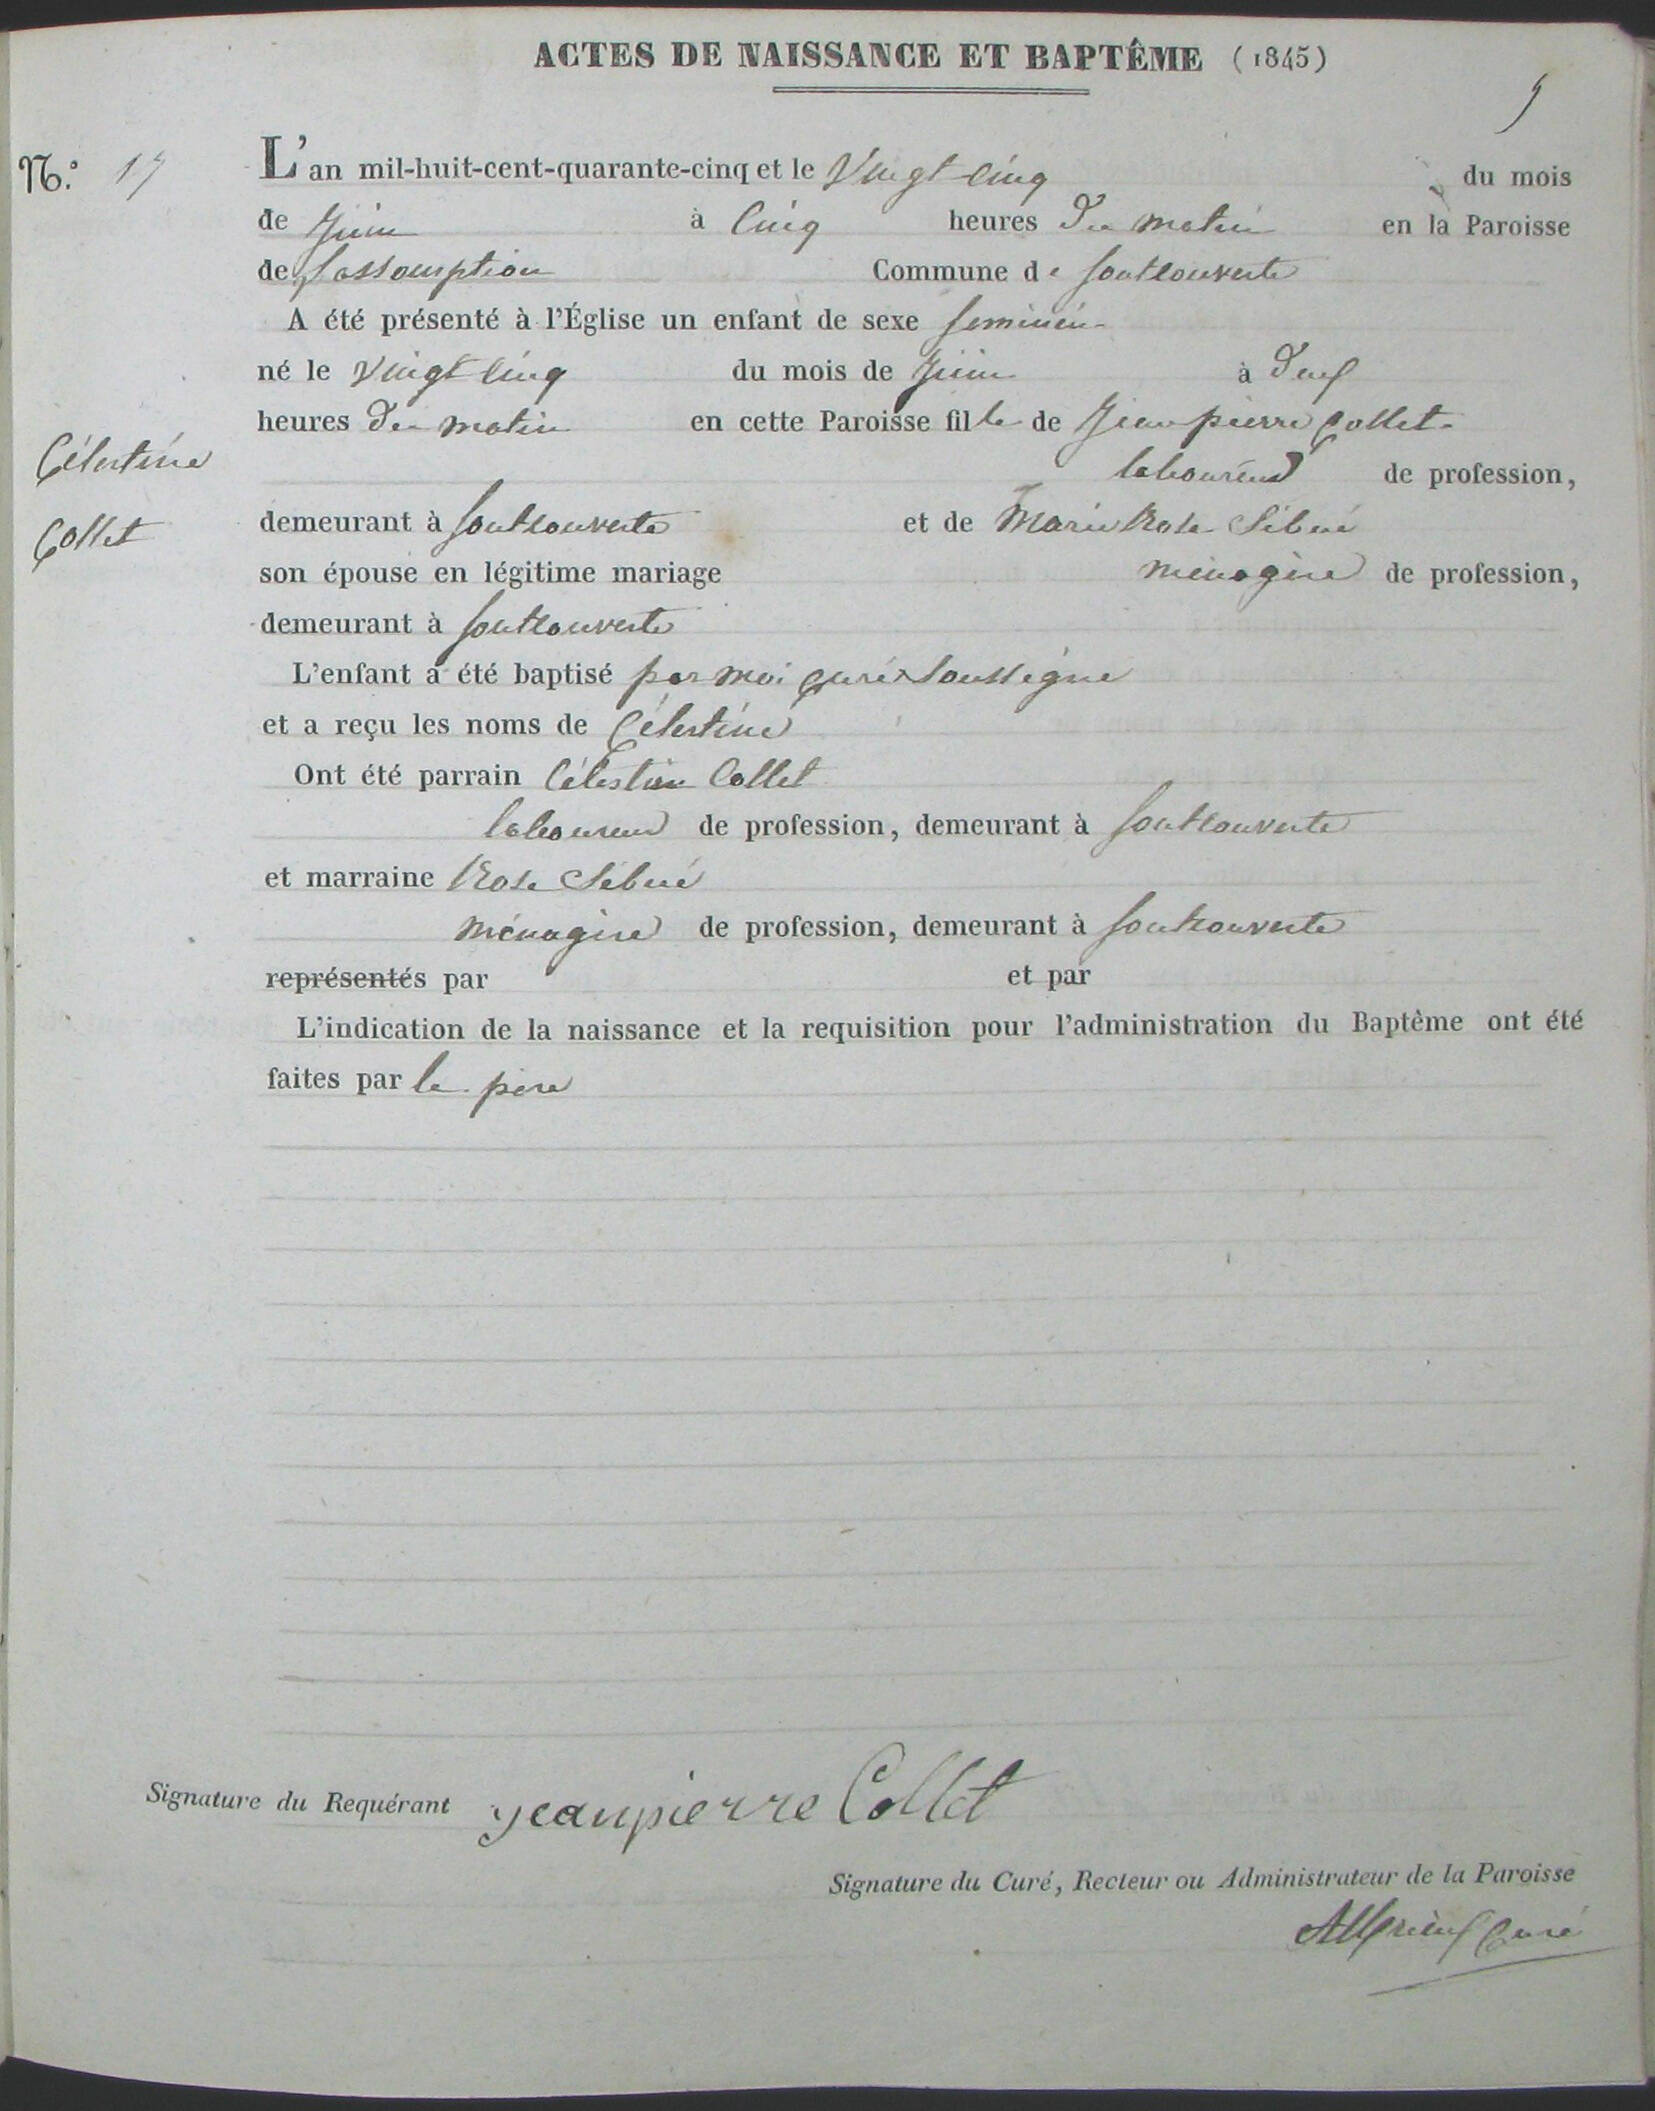 ACTES DE NAISSANCE ET BAPTÊME (1845)
9
N.º 17
L'an mil-huit-cent-quarante-cinq et le Vingt cinq du mois
de Juin à Cinq heures Du matin en la Paroisse
de Lassomption Commune de Pontcouverte
A été présenté à l'Église un enfant de sexe feminin
né le Vingt cinq du mois de Juin à Deux
heures Du matin en cette Paroisse fille de Jean pierre Collet
laboureur de profession,
Célestine
Collet
demeurant à Fontcouverte et de Marie Rose Sibué
son épouse en légitime mariage ménagère de profession,
demeurant à Fontcouverte
L'enfant a été baptisé par moi curé soussigné
et a reçu les noms de Célestine
Ont été parrain Célestin Collet
laboureur de profession, demeurant à Fontcouverte
et marraine Rose Sibué
ménagère de profession, demeurant à Fontcouverte
représentés par et par
L'indication de la naissance et la requisition pour l'administration du Baptême ont été
faites par le père
Signature du Requérant jeanpierre Collet
Signature du Curé, Recteur ou Administrateur de la Paroisse
Curé